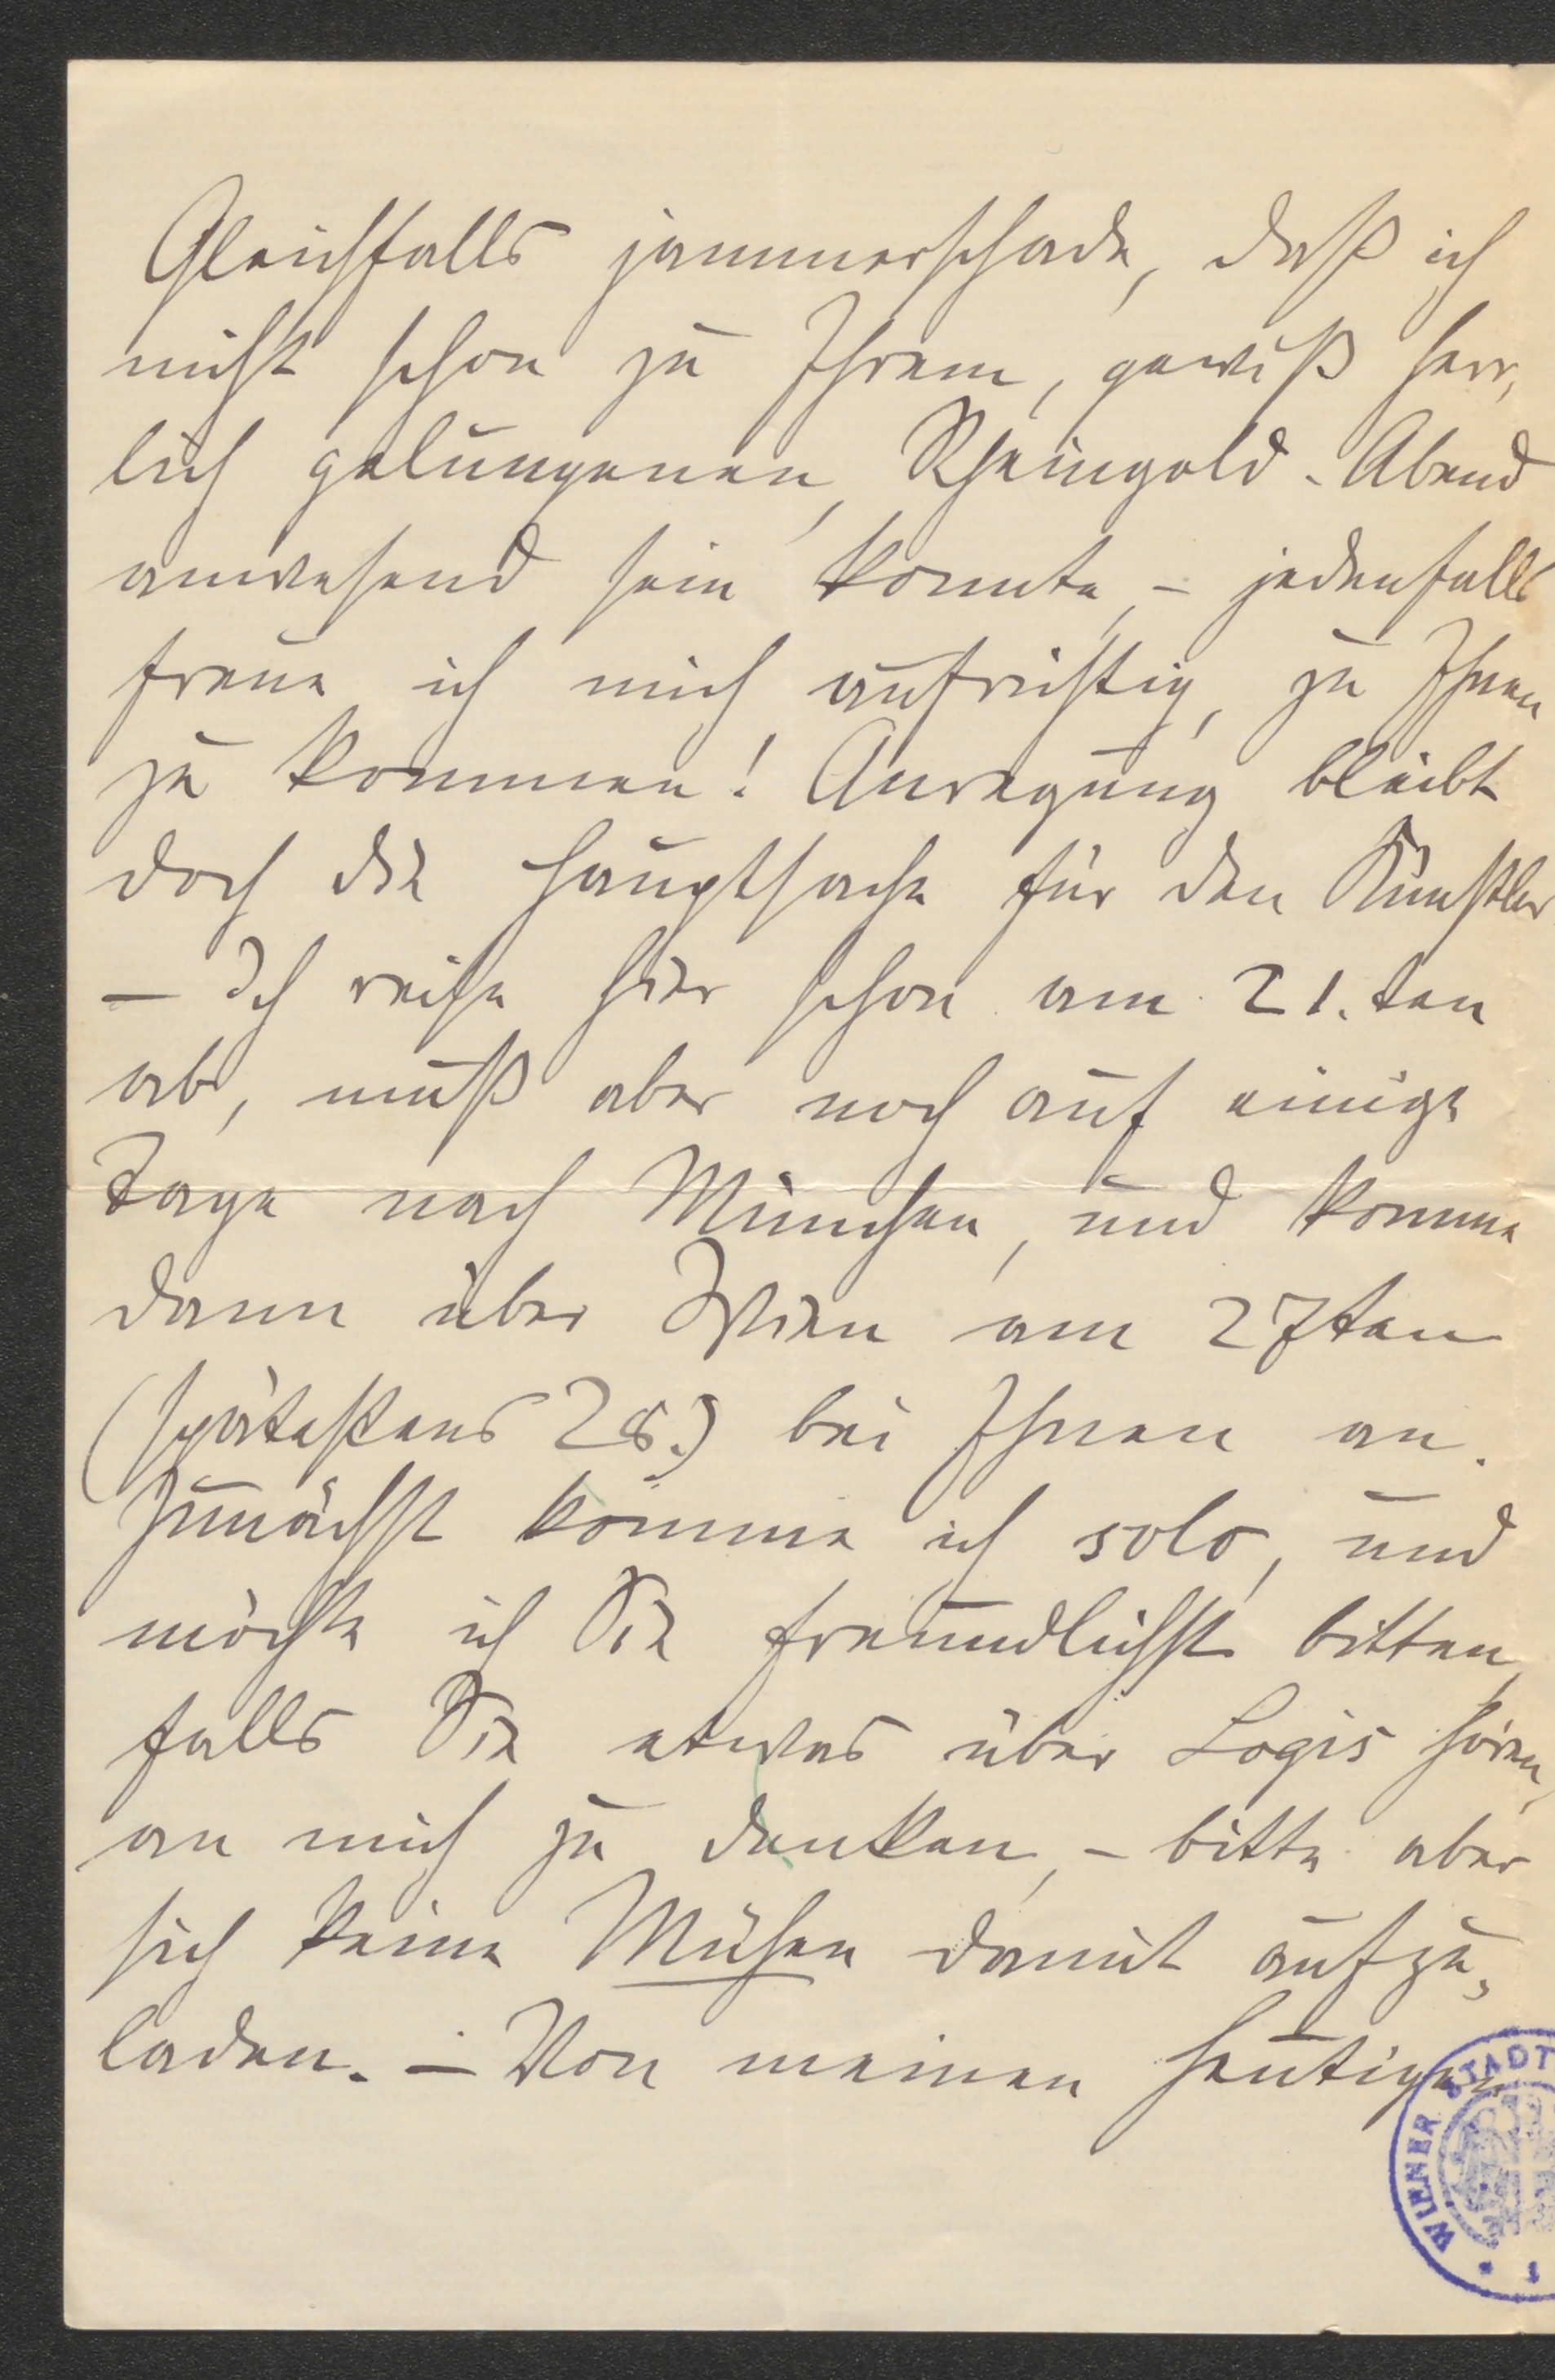 Gleichfalls jammerschade, daß ich
nicht schon zu Ihrem, gewiß herr,
lich gelungenen, Rheingold-Abend
anwesend sein konnte, – jedenfalls
freue ich mich aufrichtig, zu Ihnen
zu kommen! Anregung bleibt
doch die Hauptsache für den Künstler
– Ich reise hier schon am 21. ten
ab, muß aber noch auf einige
Tage nach München, und komme
dann über Wien am 27ten
(spätestens 28.) bei Ihnen an.
Zunächst komme ich solo, und
möchte ich Sie freundlichst bitten,
falls Sie etwas über Logis hören,
an mich zu denken, – bitte aber
sich keine Mühen damit aufzu,
laden. – Von meinen heutigen
WIENER STADT